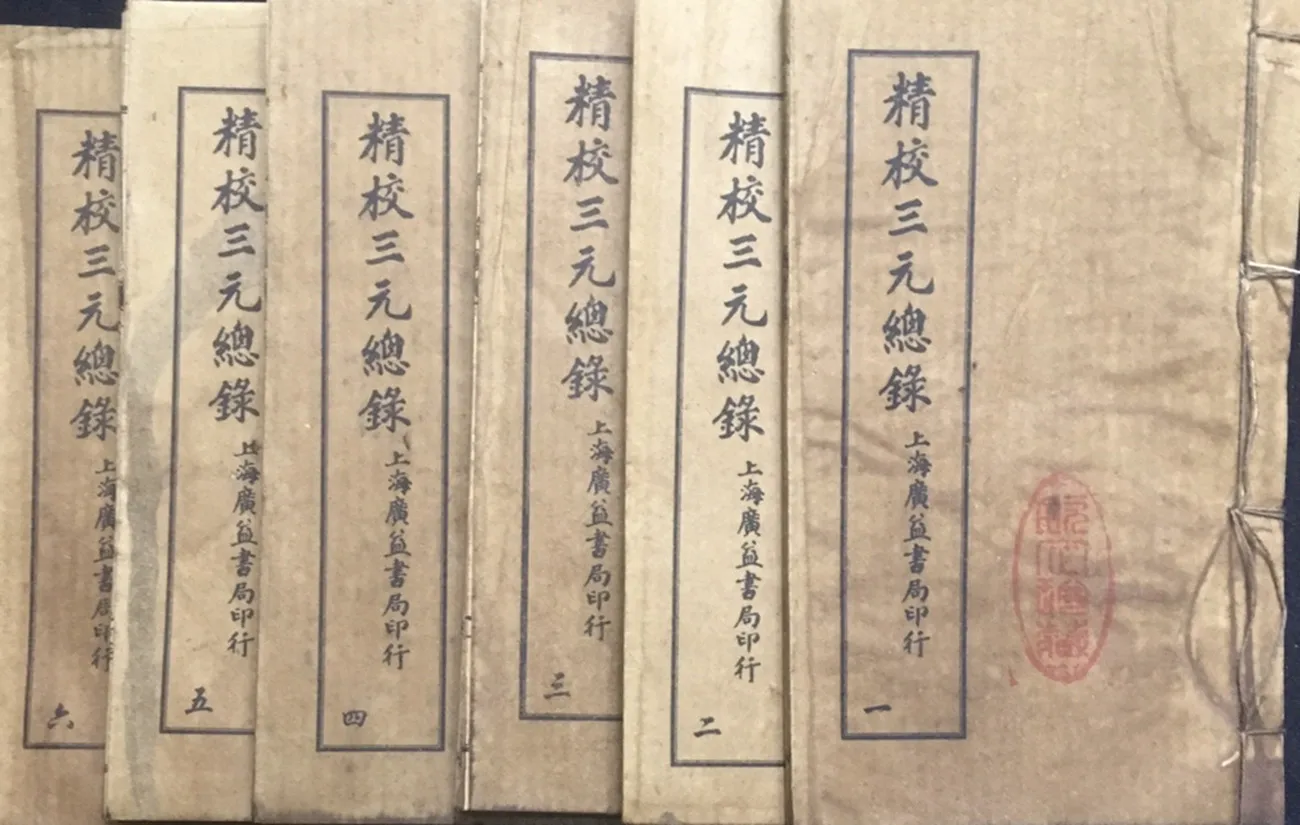 精校三元總錄
上海廣益書局印行
一
精校三元總錄
上海廣益書局印行
二
精校三元總錄
上海廣益書局印行
三
精校三元總錄
上海廣益書局印行
四
精校三元總錄
上海廣益書局印行
五
精校三元總錄
上海廣益書局印行
六